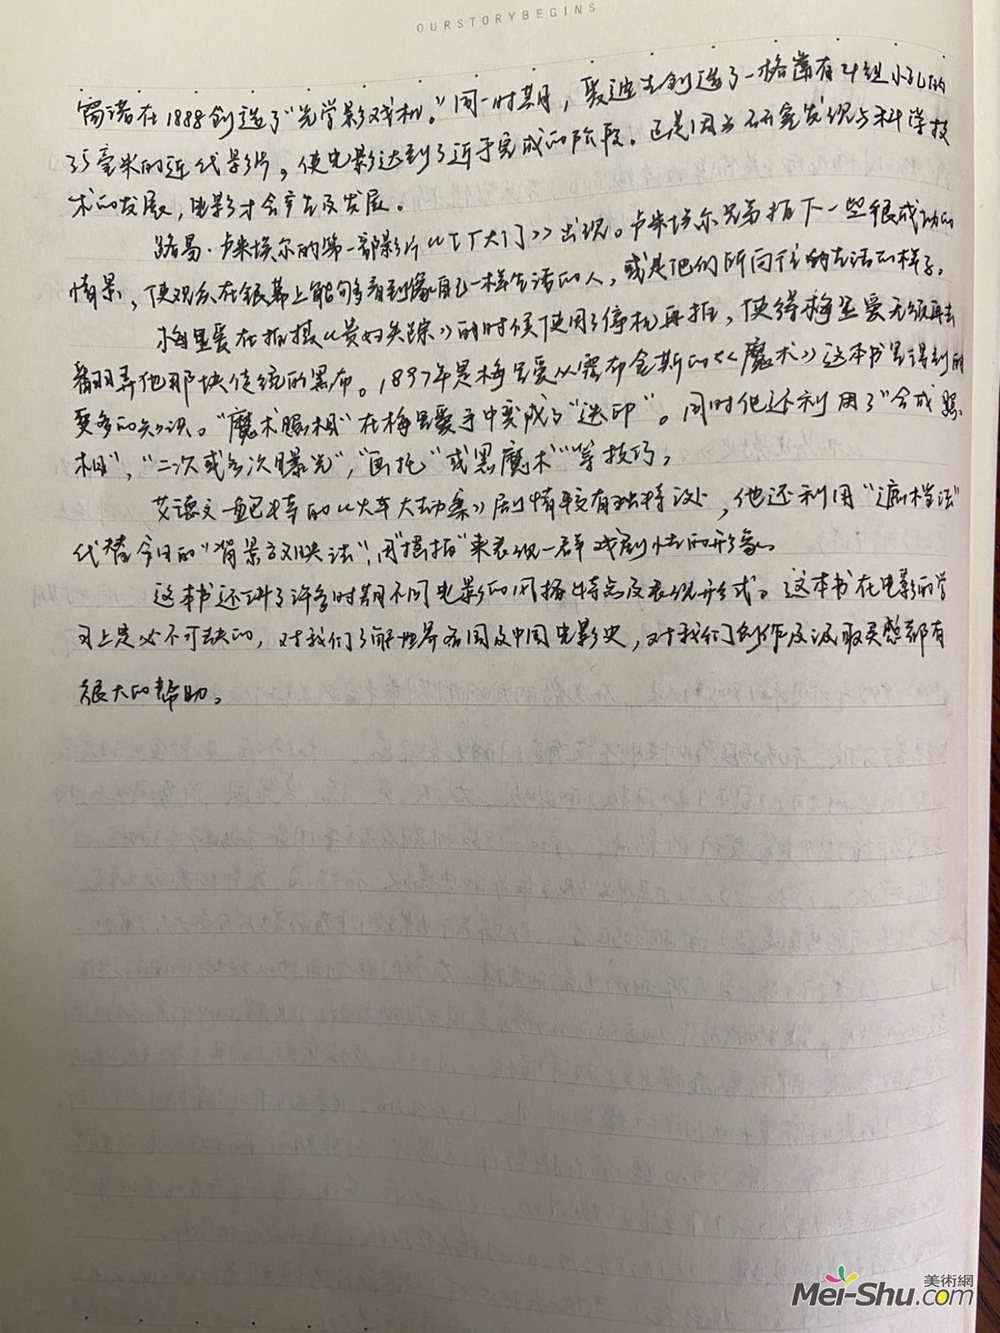 OURSTORYBEGINS
雷诺在1888创造了“光学影戏机。”同一时期，爱迪生创造了一格凿有4组小孔的
35毫米的近代影片，使电影达到了近于完成的阶段。正是因为研究发现与科学技
术的发展，电影才会产生及发展。
路易·卢米埃尔的第一部影片《工厂大门》出现。卢米埃尔兄弟拍下一些很成功的
情景，使观众在银幕上能够看到像自己一样生活的人，或是他们所向往的生活的样子。
梅里爱在拍摄《贵妇失踪》的时候使用了停机再拍，使得梅里爱无须再去
翻弄他那块传统的黑布。1897年是梅里爱从霍布金斯的《魔术》这本书里得到的
更多的知识。“魔术照相”在梅里爱手中变成了“迭印”。同时他还利用了“合成照
相”，“二次或多次曝光”，“画托”或“黑魔术”“等技巧，
艾德文·鲍特的《火车大劫案》剧情较有独特之处，他还利用“遮档法”
代替今日的“背景放映法”，用“摇拍”来表现一群戏剧性的形象。
这本书还讲了许多时期不同电影的风格特点及表现形式。这本书在电影的学
习上是必不可缺的，对我们了解世界各国及中国电影史，对我们创作及汲取灵感都有
很大的帮助。
美術網
Mei-Shu.com